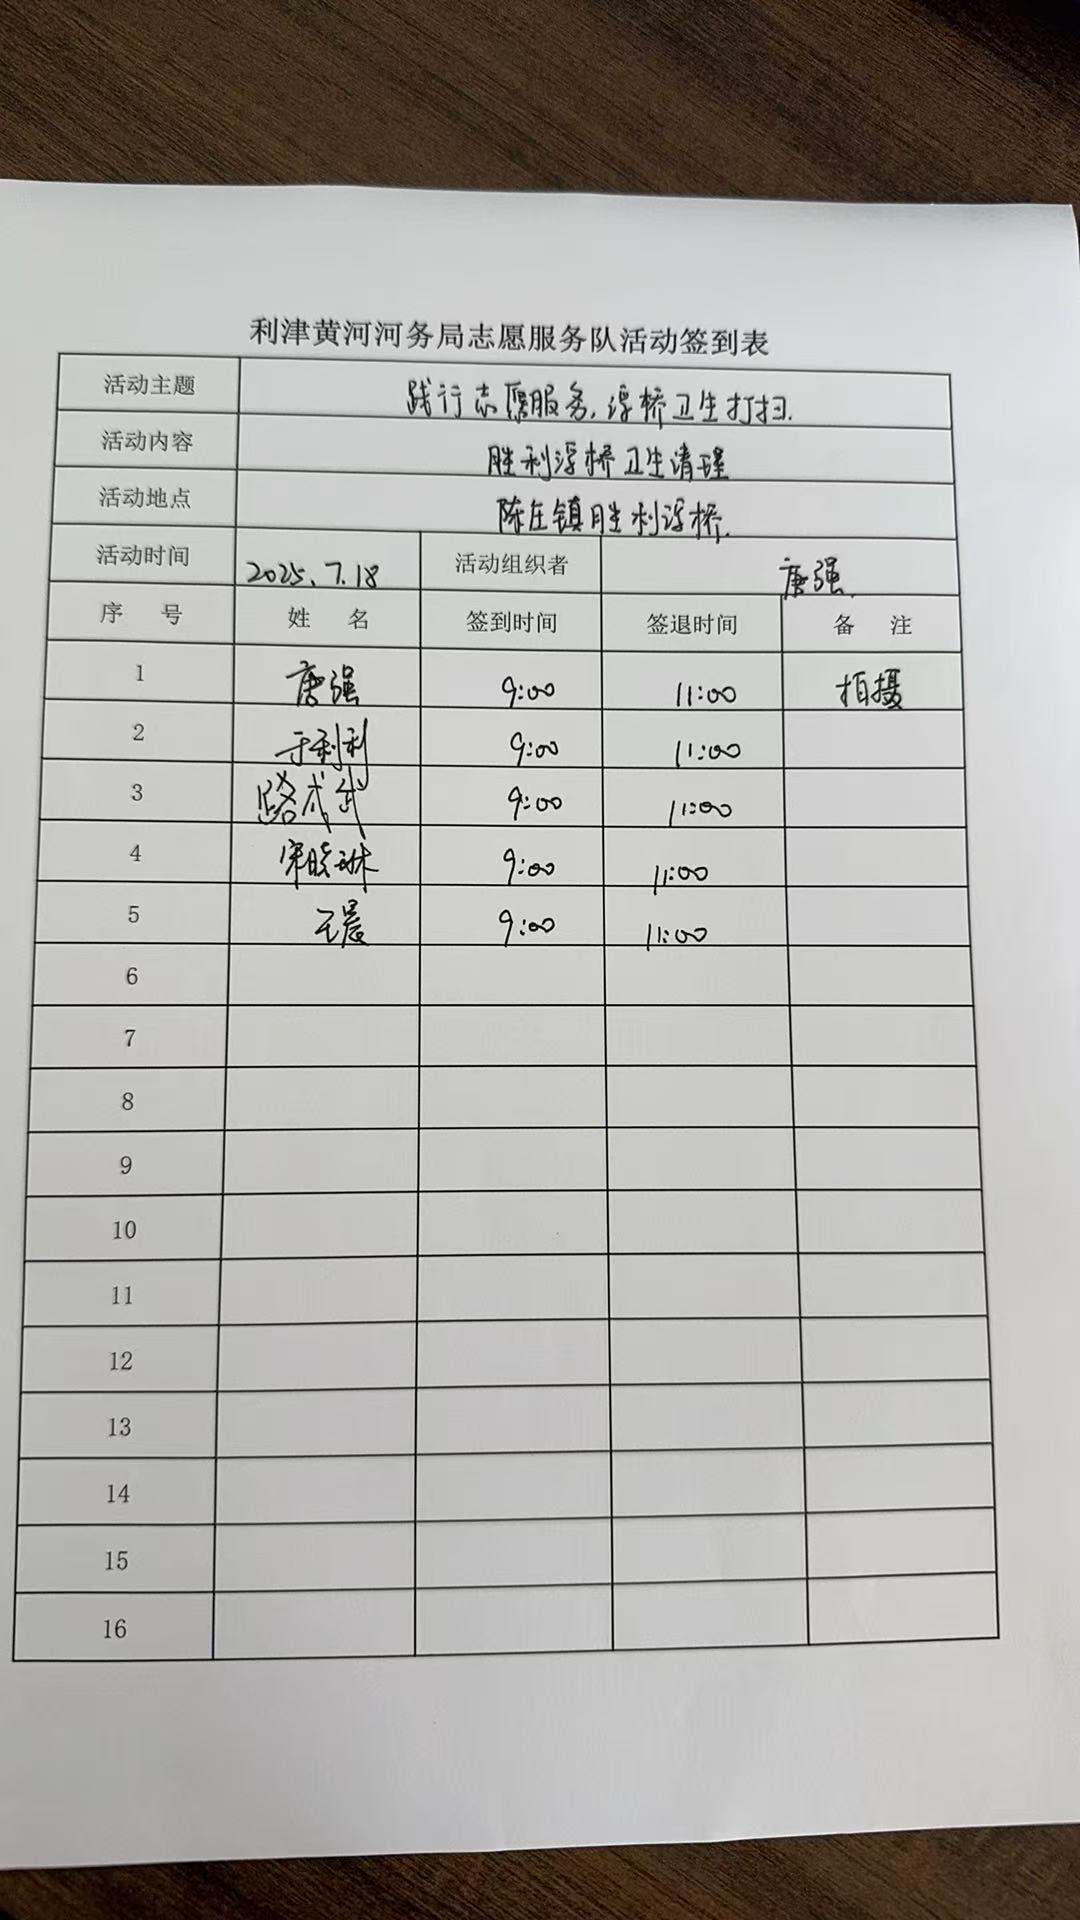 利津黄河河务局志愿服务队活动签到表
活动主题 践行志愿服务,浮桥卫生打扫.
活动内容 胜利浮桥卫生清理
活动地点 陈庄镇胜利浮桥.
活动时间 2025.7.18 活动组织者 唐强.
序 号 姓 名 签到时间 签退时间 备 注
1 唐强 9:00 11:00 拍摄
2 于利利 9:00 11:00
3 路成武 9:00 11:00
4 宋晓琳 9:00 11:00
5 王晨 9:00 11:00
6
7
8
9
10
11
12
13
14
15
16